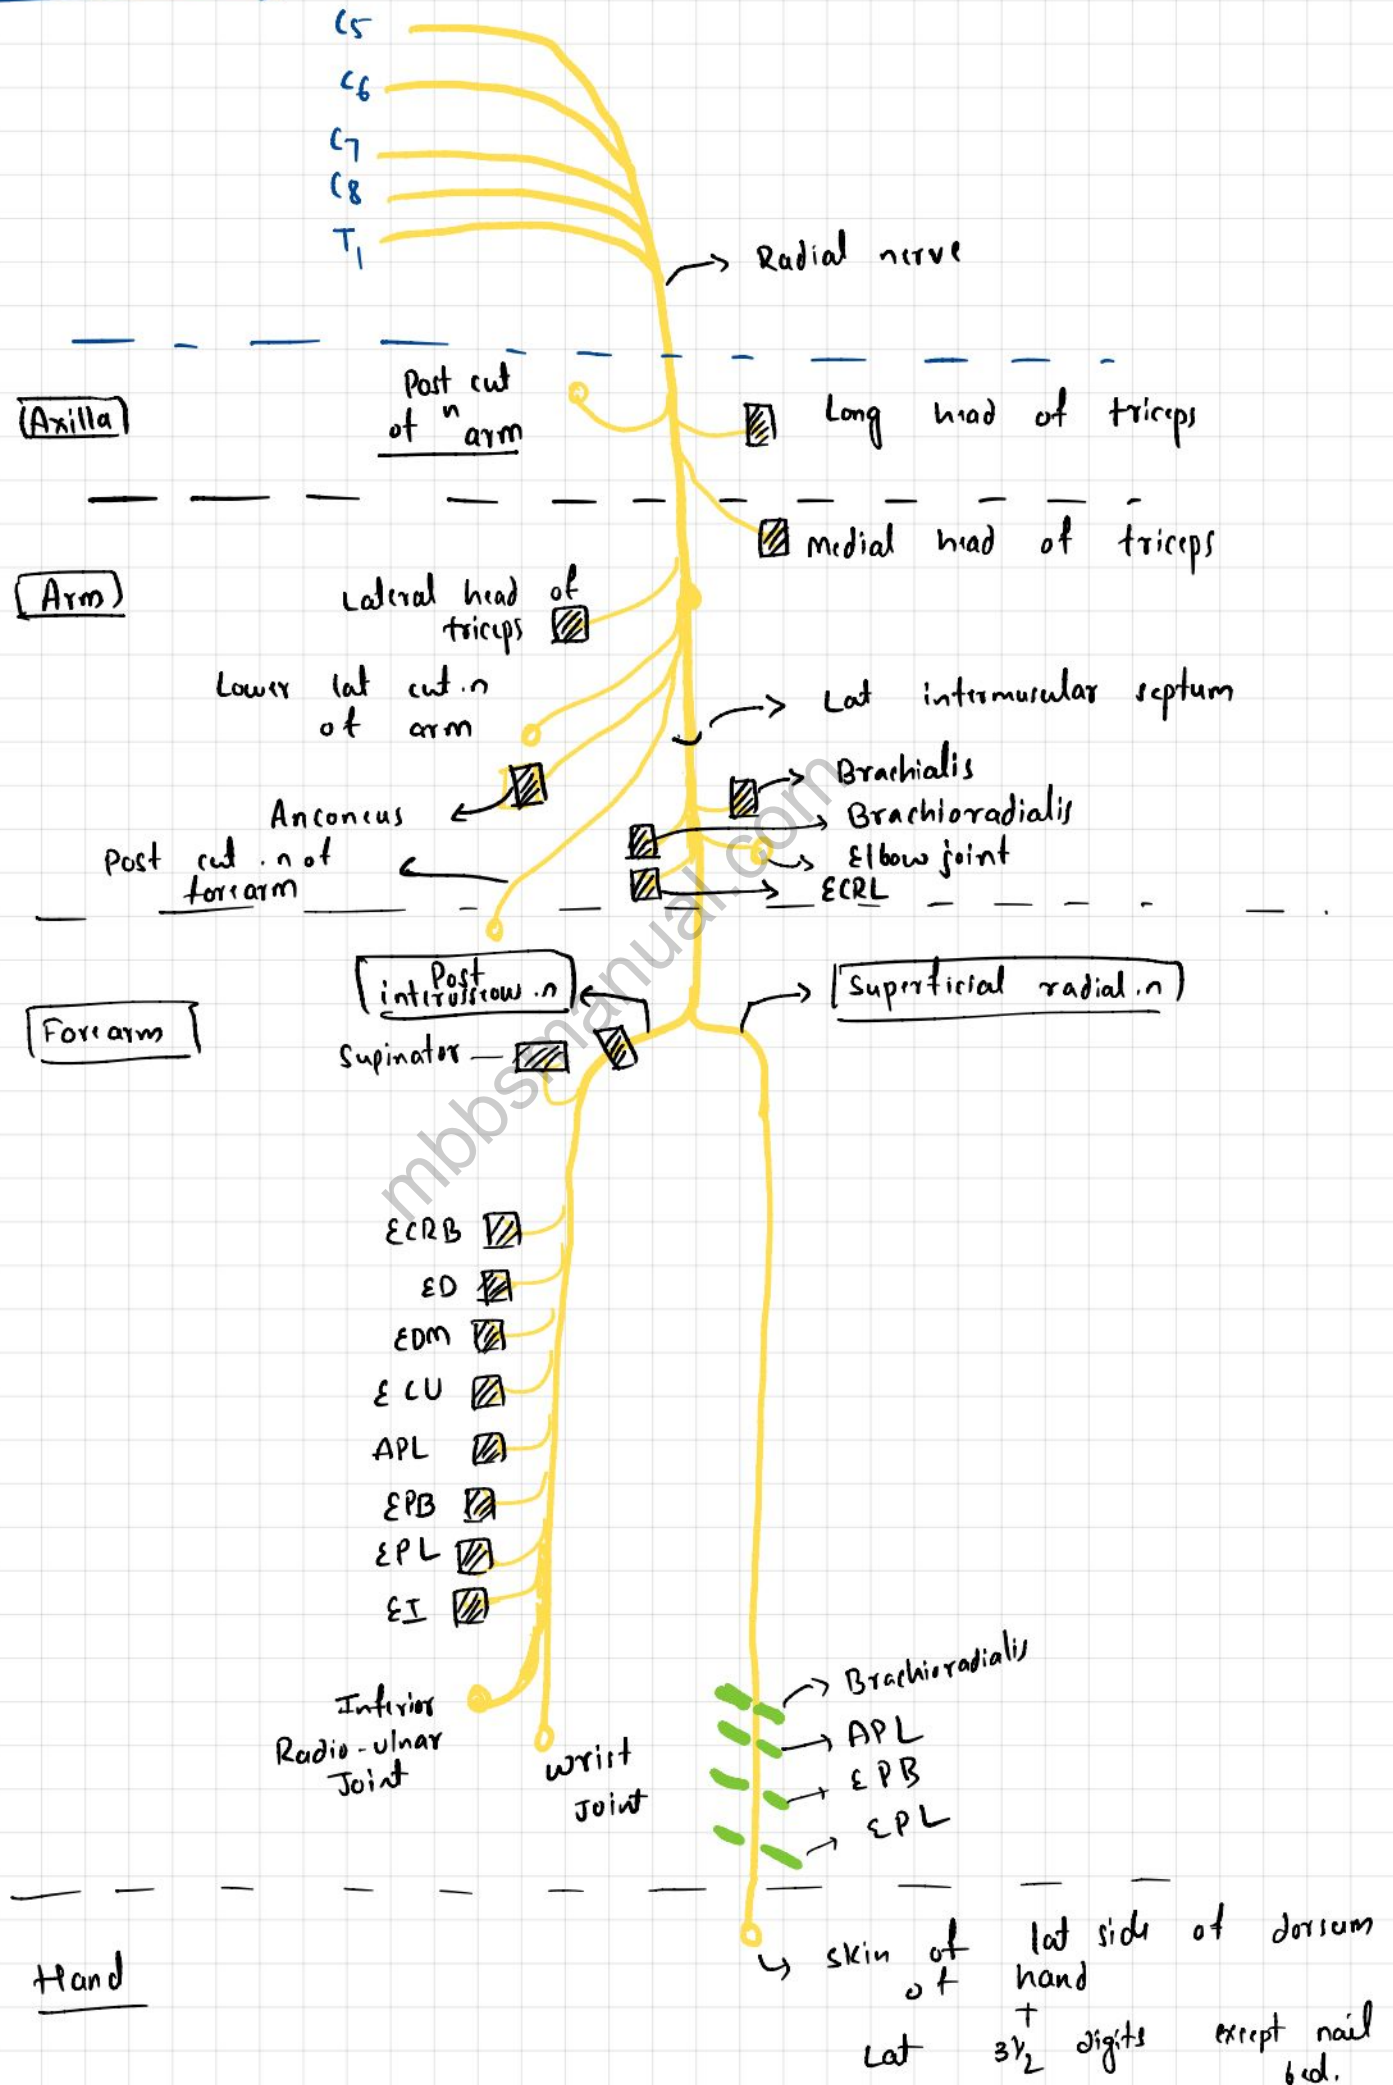 C5
C6
C7
C8
T1
Radial nerve
Axilla
Post cut
n
of arm
Long head of triceps
Medial head of triceps
Arm
Lateral head of
triceps
Lower lat cut.n
of arm
Lat intermuscular septum
Brachialis
Anconeus
Brachioradialis
Post cut .n of
forearm
Elbow joint
ECRL
Post
interosseous .n
Superficial radial.n
Forearm
Supinator
mbbsmanual.com
ECRB
ED
EDM
ECU
APL
EPB
EPL
EI
Inferior
Radio-ulnar
Joint
Wrist
Joint
Brachioradialis
APL
EPB
EPL
Hand
skin of lat side of dorsum
of hand
+
Lat 3½ digits except nail
bed.